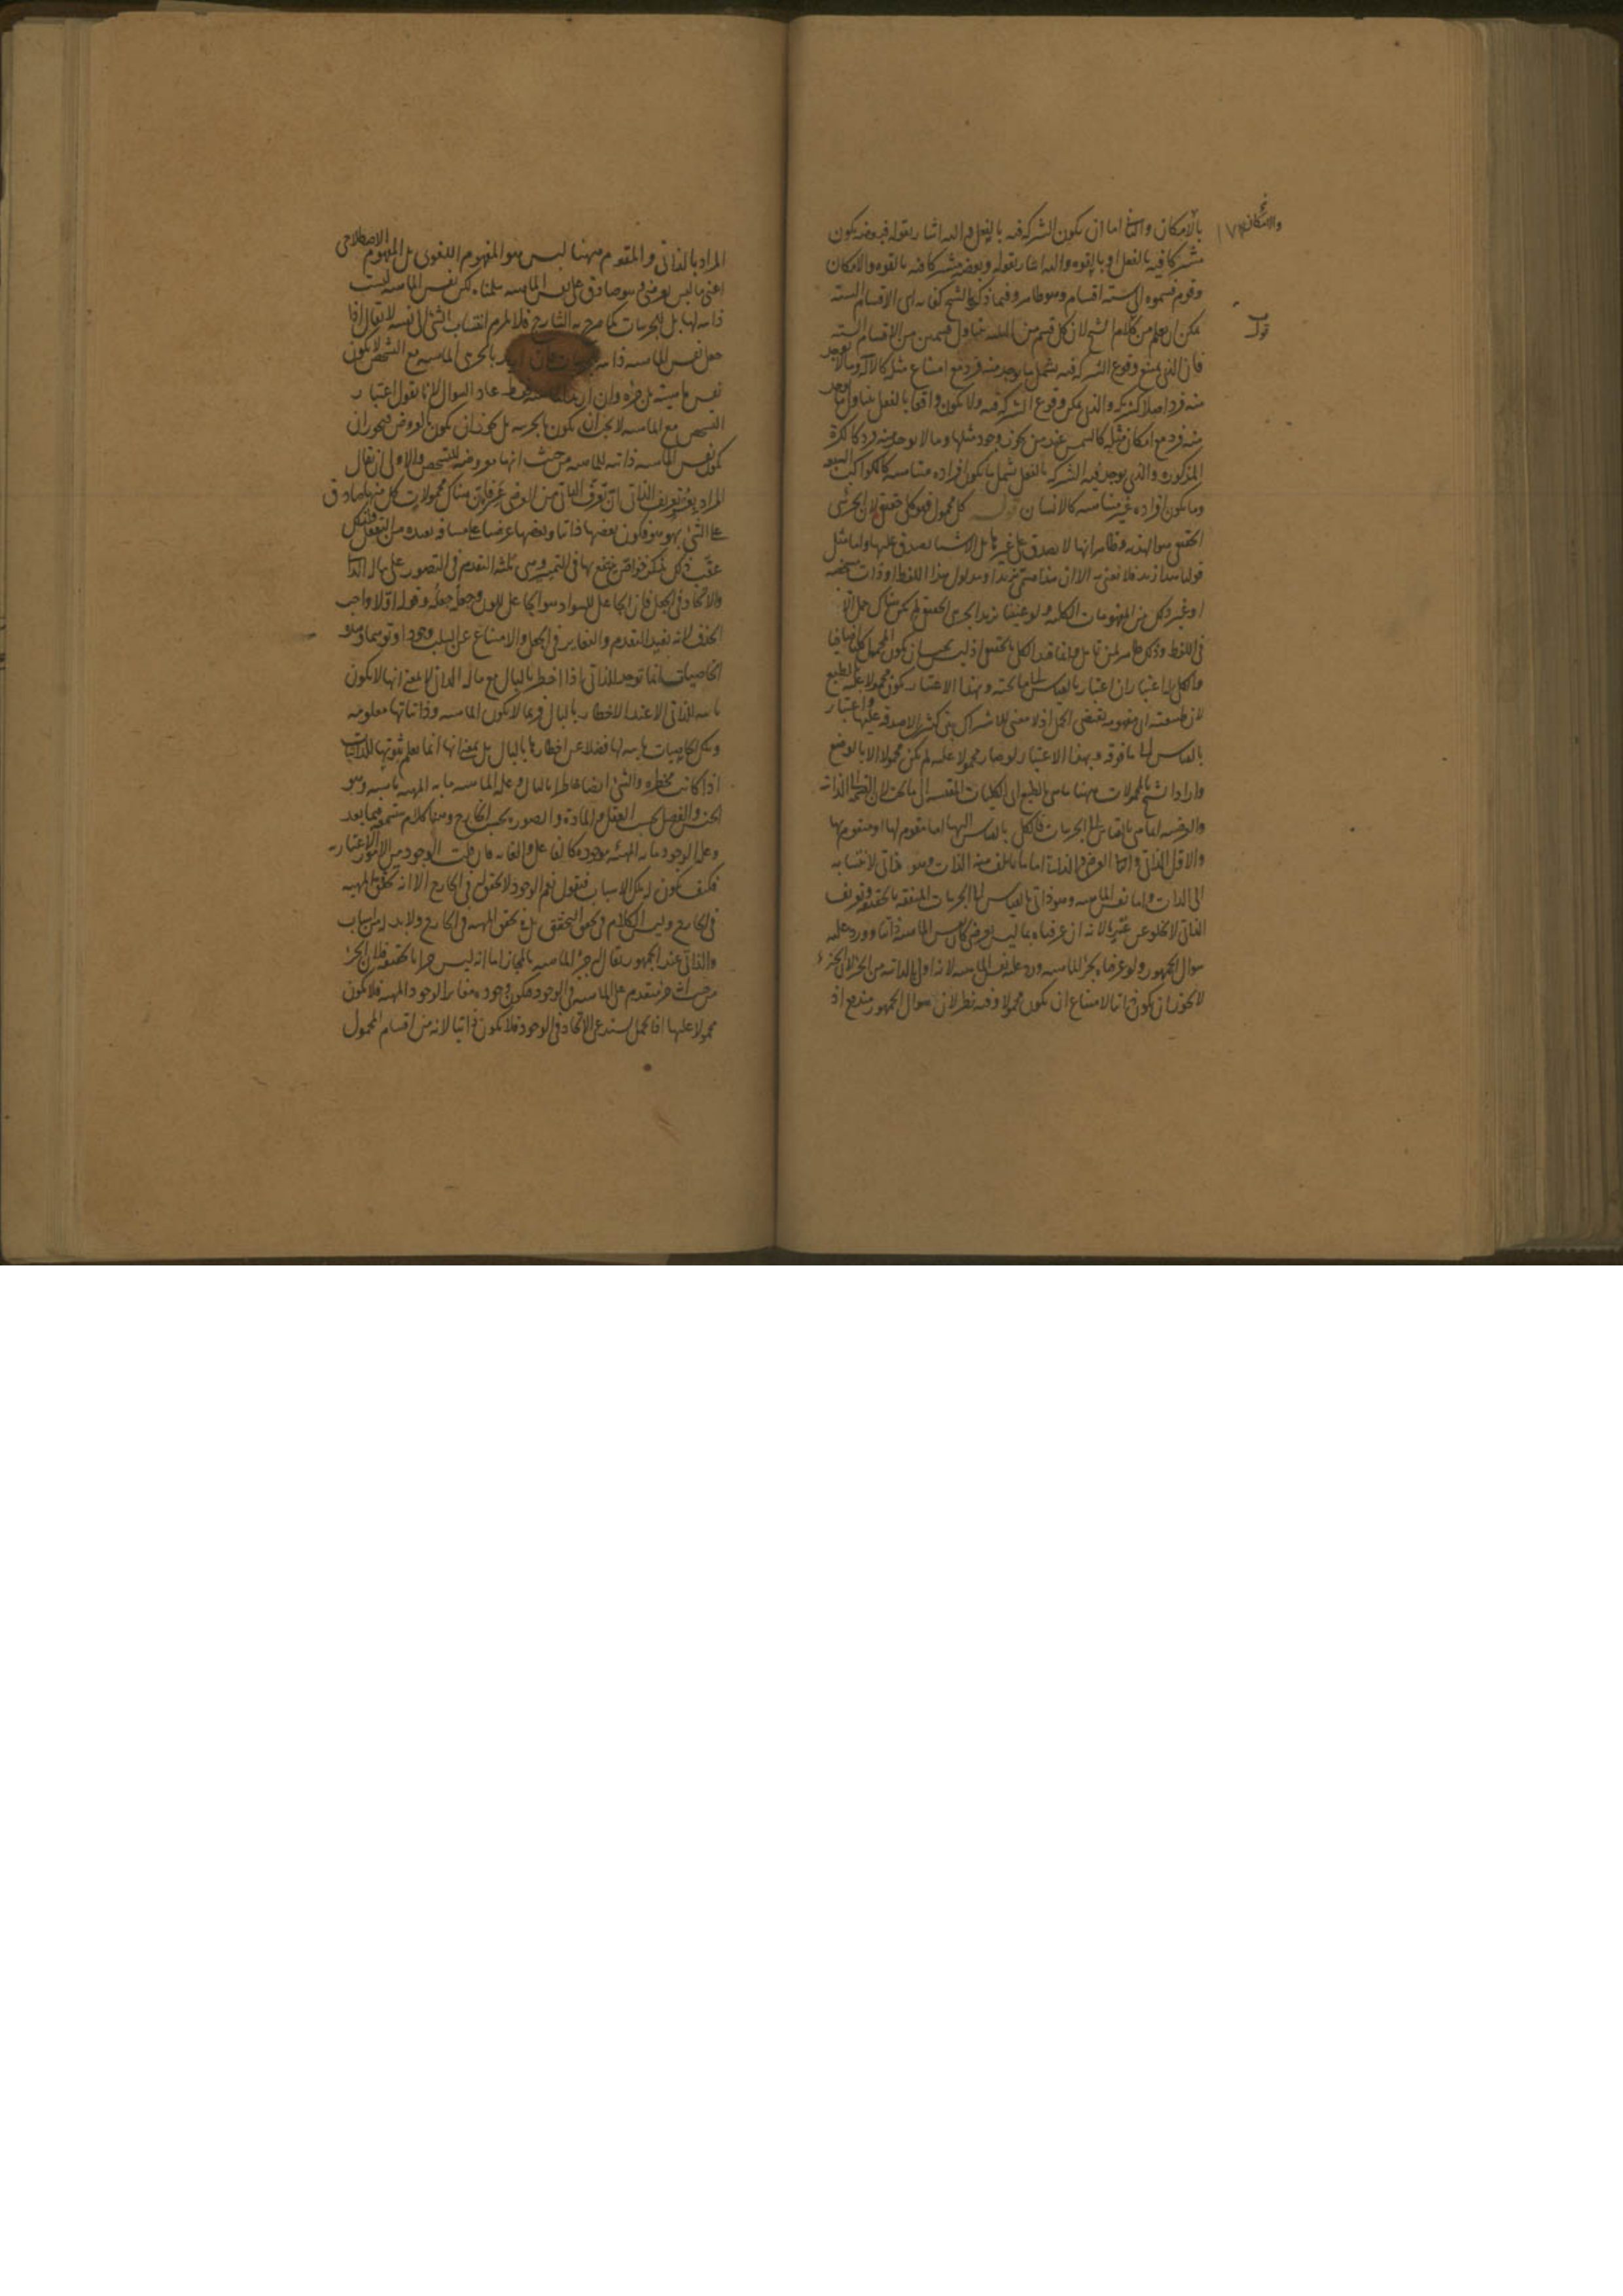 بالامكان والثانى اما ان يكون الشركة فيه بالفعل واليه اشار بقوله فبعضه يكون
مشتركا فيه بالفعل او بالقوه واليه اشار بقوله وبعضه مشتركا فيه بالقوه والامكان
وقوم قسموه الى سته اقسام وهو ظاهر وفيما ذكره الشيخ كفايه اى الاقسام السته
يمكن ان يعلم من كلام الشيخ لان كل قسم من الثلثه يتناول قسمين من الاقسام السته
فان الذى يمتنع وقوع الشركه فيه يشمل ما يوجد منه فرد مع امتناع مثله كالاله وما لا يوجد
منه فرد اصلا كشريكه والذى يمكن وقوع الشركه فيه ولا يكون واقعا بالفعل يتناول ما وجد
منه فرد مع امكان مثله كالشمس عند من يجوز وجود مثلها وما لا يوجد منه فرد كالكرة
المذكوره والذى يوجد فيه الشركه بالفعل يشمل ما يكون افراده متناهيه كالكواكب
وما يكون افراده غير متناهيه كالانسان قوله كل محمول فهو كلى حقيقى لان الجزئى
الحقيقى هو الهذيه وظاهر انها لا يصدق على غيرها بل الاشيا يصدق عليها واما مثل
قولنا هذا زيد فلا نعنى به الا ان هذا مسمى بزيد او مدلول هذا اللفظ او ذات مشخصه
او غير ذلك من المفهومات الكليه ولو عنينا بزيد الجزئى الحقيقى لم يكن هناك حمل الا
فى اللفظ وذلك ظاهر لمن تامل وانما قيد الكلى بالحقيقى اذ ليس يجب ان يكون المحمول كليا اضافيا
والكلى له اعتباران اعتبار بالقياس الى ما تحته وبهذا الاعتبار يكون محمولا عليه بالطبع
لان طبيعته اى مفهومه يقتضى الحمل اذ لا معنى للاشتراك بين كثيرين الا صدقه عليها واعتبار
بالقياس الى ما فوقه وبهذا الاعتبار لو صار محمولا عليه لم يكن محمولا الا بالوضع
واراد الشيخ بالمحمولات ههنا ما هى بالطبع اى الكليات المقيسه الى ما تحتها لان الذاتيه
والعرضيه انما هى بالقياس الى الجزئيات فالكلى بالقياس اليها اما مقوم لها او متقوم بها
والاول الذاتى والثانى العرضى والذاتى اما ما يأتلف منه الذات وهو ذاتى لانتسابه
الى الذات واما نفس الماهيه وهو ذاتى بالقياس الى الجزئيات المتفقه بالحقيقه وتعريف
الذاتى لا يخلو عن عسر لانه ان عرفناه بما ليس بعرضى كان نفس الماهيه ذاتيا وورد عليه
سوال الجمهور ولو عرفناه بجزء الماهيه ورد عليه نفس الماهيه لانه اولى بالذاتيه من الجزء لان الجزء
لا يجوز ان يكون ذاتيا لامتناع ان يكون محمولا وفيه نظر لان سوال الجمهور مندفع اذ
والامكان
١٧٣
قوله
المراد بالذاتى والمقوم ههنا ليس هو المفهوم اللغوى بل المفهوم الاصطلاحى
اعنى ما ليس بعرضى وهو صادق على نفس الماهيه سلمناه لكن نفس الماهيه ليست
ذاتيه لها بل للجزئيات كما صرح به الشارح فلا يلزم انتساب الشى الى نفسه لا يقال اذا
جعل نفس الماهيه ذاتيه بالجزئى الماهيه مع التشخص لا يكون
نفس ماهيته بل جزءه وان اريد عاد السوال لانا نقول اعتبار
التشخص مع الماهيه لا يجب ان يكون بالجزئيه بل يجوز ان يكون بالعروض فيجوز ان
يكون نفس الماهيه ذاتيه للماهيه من حيث انها معروضه للتشخص والاولى ان يقال
المراد
على الشى بهو هو فيكون بعضها ذاتيا وبعضها عرضيا
عقب ذلك بذكر خواص ينتفع بها فى التمييز وهى ثلثه التقدم فى التصور على ماله الذاتى
والاتحاد فى الجعل فان الجاعل للسواد هو الجاعل للون وجعله جعله وقوله اولا واجب
الحذف لانه يفيد التقدم والتغاير فى الجعل والامتناع عن السلب وجودا وتوهما وهذه
الخاصيات انما توجد للذاتى اذا اخطر بالبال مع ماله الذاتى لا بمعنى انها لا يكون
ثابته للذاتى الا عند الاخطار بالبال فربما لا يكون الماهيه وذاتياتها معلومه
وتلك الخاصيات ثابته لها فضلا عن اخطارها بالبال بل بمعنى انها انما يعلم ثبوتها للذاتيات
اذا كانت مخطره والشى ايضا خاطرا بالبال وعله الماهيه ما به الماهيه ماهيه وهو
الجنس والفصل بحسب العقل والمادة والصوره بحسب الخارج وههنا كلام ستسمعه فيما بعد
وعله الوجود ما به المهيه موجوده كالفاعل والغايه فان قلت الوجود من الامور الاعتباريه
فكيف يكون له تلك الاسباب فنقول نعم الوجود لا تحقق له فى الخارج الا انه تحقق المهيه
فى الخارج وليس الكلام فى تحقق التحقق بل فى تحقق المهيه فى الخارج ولا بد له من اسباب
والذاتى عند الجمهور يقال لجزء الماهيه بالمجاز اما انه ليس جزءا بالحقيقه فلان الجزء
من حيث هو جزء متقدم على الماهيه فى الوجود فيكون وجوده مغايرا لوجود المهيه فلا يكون
محمولا عليها اذ الحمل يستدعى الاتحاد فى الوجود فلا يكون ذاتيا لانه من اقسام المحمول